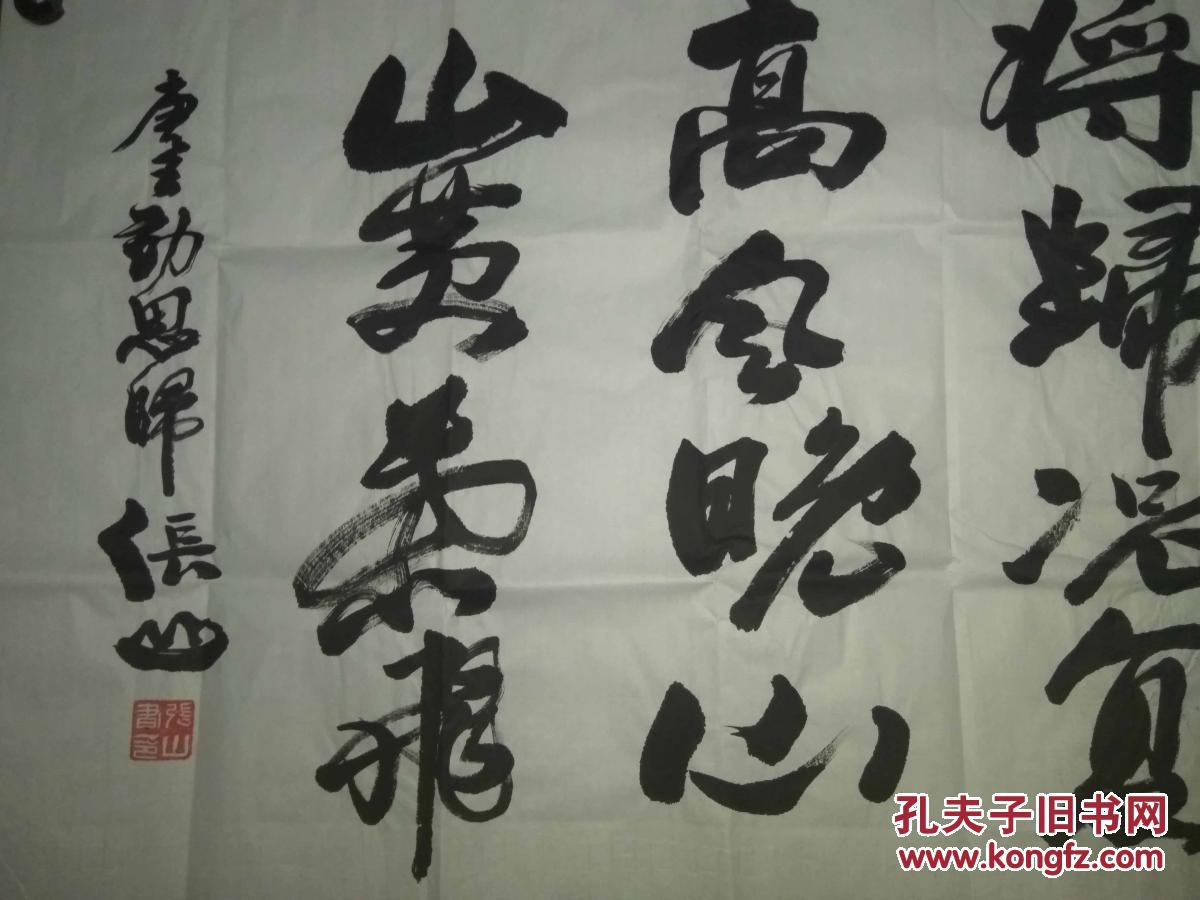 将歸况复
高風晚山
山黄葉飛
唐王勃思歸 張山
張山書印
孔夫子旧书网
www.kongfz.com